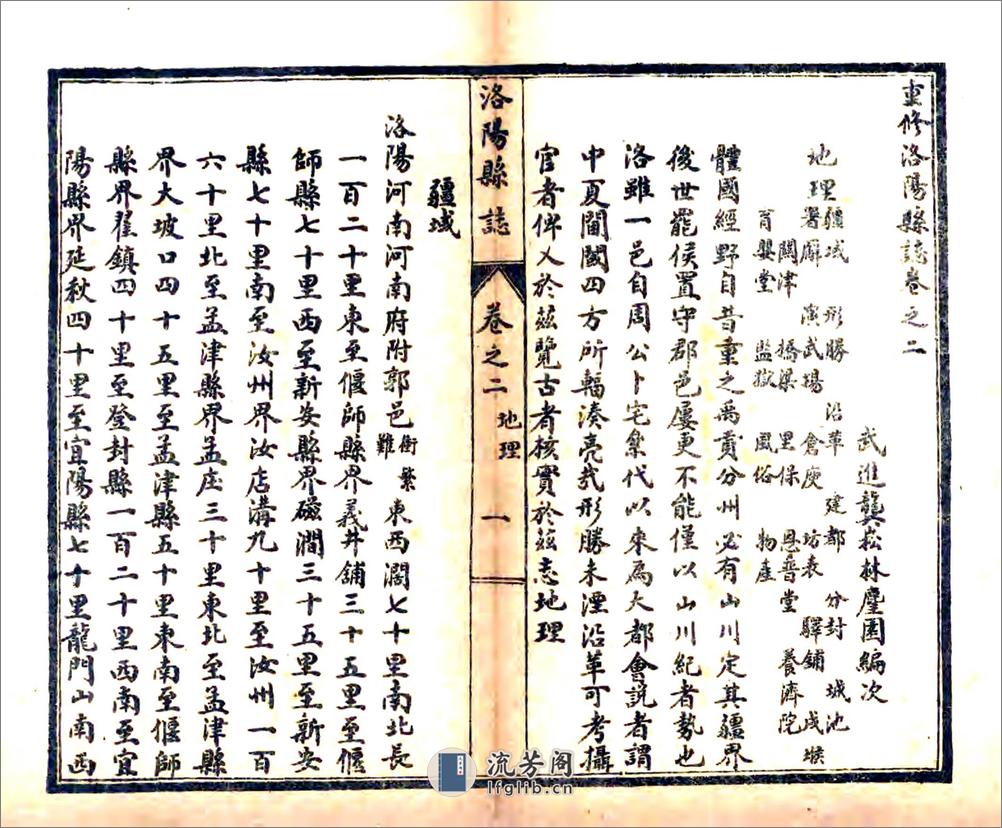 重修洛陽縣誌卷之二
武進龔崧林麈園編次
地理
疆域 形勝 沿革 建都 分封 城池
署廨 演武場 倉庾 坊表 驛鋪 戍堠
關津 橋梁 里保 恩普堂 養濟院
育嬰堂 監獄 風俗 物產
體國經野自昔重之禹貢分州必有山川定其疆界
後世罷侯置守郡邑屢更不能僅以山川紀者勢也
洛雖一邑自周公卜宅桑代以來為大都會説者謂
中夏閫閾四方所輻湊亮哉形勝未湮沿革可考攝
官者俾乂於茲覽古者核實於茲志地理
洛陽縣誌
卷之二
地理
一
疆域
洛陽河南河南府附郭邑衝繁難東西濶七十里南北長
一百二十里東至偃師縣界義井舖三十五里至偃
師縣七十里西至新安縣界磁澗三十五里至新安
縣七十里南至汝州界汝店溝九十里至汝州一百
六十里北至孟津縣界孟庄三十里東北至孟津縣
界大坡口四十五里至孟津縣五十里東南至偃師
縣界翟鎮四十里至登封縣一百二十里西南至宜
陽縣界延秋四十里至宜陽縣七十里龍門山南西
流芳阁
lfglib.cn